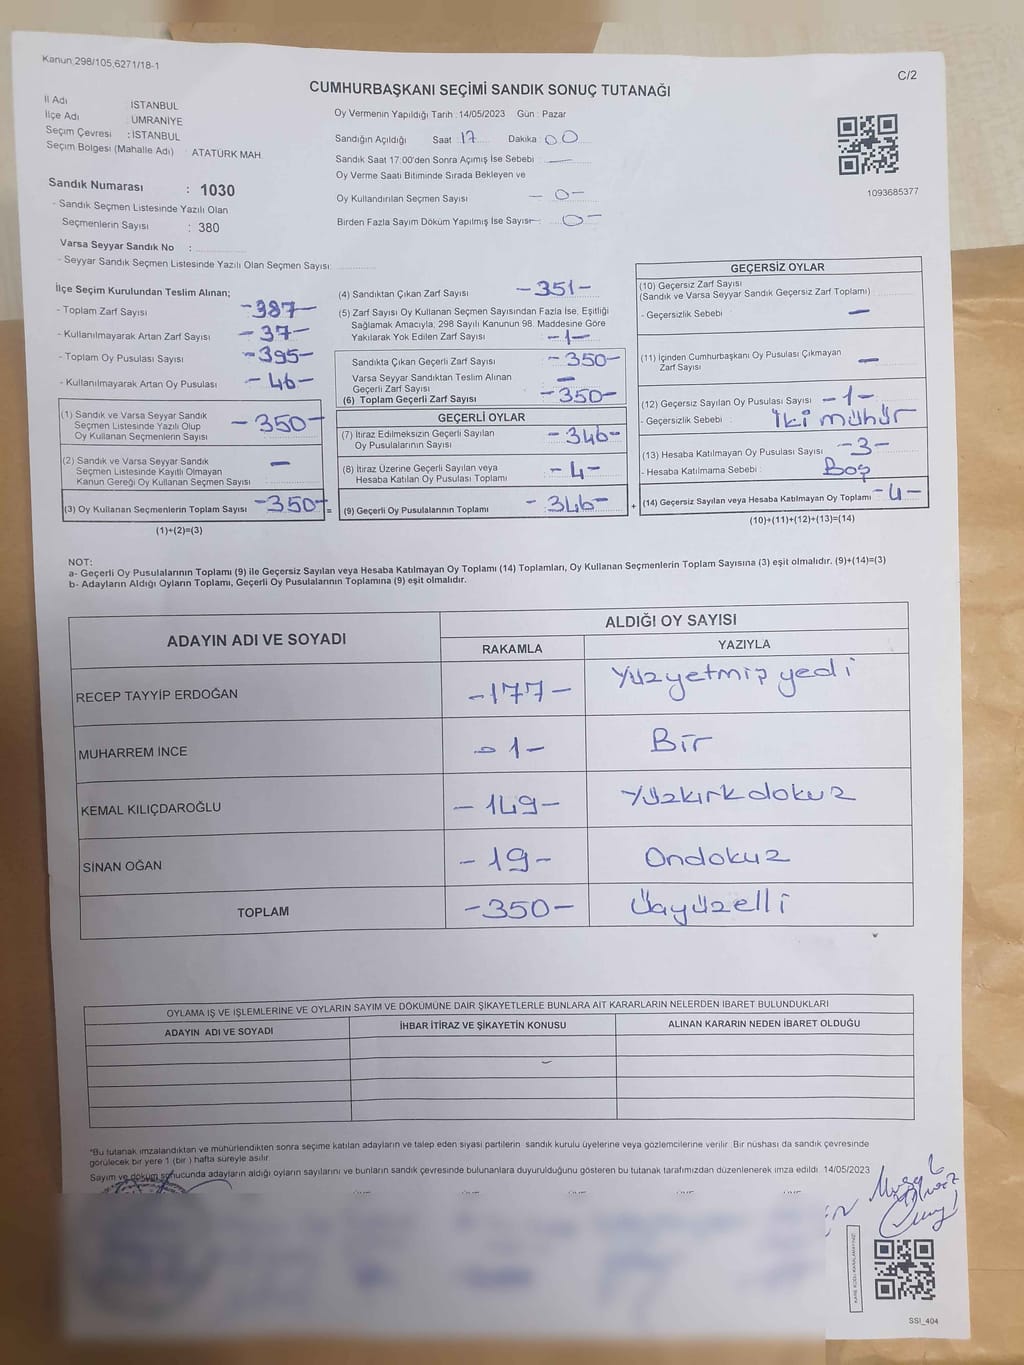 Kanun,298/105,6271/18-1
C/2
CUMHURBAŞKANI SEÇİMİ SANDIK SONUÇ TUTANAĞI
İl Adı : İSTANBUL
İlçe Adı : ÜMRANİYE
Seçim Çevresi : İSTANBUL
Seçim Bölgesi (Mahalle Adı) : ATATÜRK MAH.
Oy Vermenin Yapıldığı Tarih : 14/05/2023 Gün : Pazar
Sandığın Açıldığı Saat : 17 Dakika : 00
Sandık Saat 17:00'den Sonra Açımış İse Sebebi : —
Oy Verme Saati Bitiminde Sırada Bekleyen ve
Oy Kullandırılan Seçmen Sayısı - 0 -
Birden Fazla Sayım Döküm Yapılmış İse Sayısı : 0 -
1093685377
Sandık Numarası : 1030
- Sandık Seçmen Listesinde Yazılı Olan
Seçmenlerin Sayısı : 380
Varsa Seyyar Sandık No :
- Seyyar Sandık Seçmen Listesinde Yazılı Olan Seçmen Sayısı:
İlçe Seçim Kurulundan Teslim Alınan;
- Toplam Zarf Sayısı : -387-
- Kullanılmayarak Artan Zarf Sayısı : -37-
- Toplam Oy Pusulası Sayısı : -395-
- Kullanılmayarak Artan Oy Pusulası : -46-
(1) Sandık ve Varsa Seyyar Sandık
Seçmen Listesinde Yazılı Olup
Oy Kullanan Seçmenlerin Sayısı -350-
(2) Sandık ve Varsa Seyyar Sandık
Seçmen Listesinde Kayıtlı Olmayan
Kanun Gereği Oy Kullanan Seçmen Sayısı : —
(3) Oy Kullanan Seçmenlerin Toplam Sayısı -350- =
(1)+(2)=(3)
(4) Sandıktan Çıkan Zarf Sayısı -351-
(5) Zarf Sayısı Oy Kullanan Seçmen Sayısından Fazla İse, Eşitliği
Sağlamak Amacıyla, 298 Sayılı Kanunun 98. Maddesine Göre
Yakılarak Yok Edilen Zarf Sayısı : -1-
Sandıkta Çıkan Geçerli Zarf Sayısı : -350-
Varsa Seyyar Sandıktan Teslim Alınan
Geçerli Zarf Sayısı —
(6) Toplam Geçerli Zarf Sayısı : -350-
GEÇERLİ OYLAR
(7) İtiraz Edilmeksizin Geçerli Sayılan
Oy Pusulalarının Sayısı : -346-
(8) İtiraz Üzerine Geçerli Sayılan veya
Hesaba Katılan Oy Pusulası Toplamı : -4-
(9) Geçerli Oy Pusulalarının Toplamı : -346- +
GEÇERSİZ OYLAR
(10) Geçersiz Zarf Sayısı
(Sandık ve Varsa Seyyar Sandık Geçersiz Zarf Toplamı) :
- Geçersizlik Sebebi : —
(11) İçinden Cumhurbaşkanı Oy Pusulası Çıkmayan
Zarf Sayısı : —
(12) Geçersiz Sayılan Oy Pusulası Sayısı : -1-
- Geçersizlik Sebebi : İki mühür
(13) Hesaba Katılmayan Oy Pusulası Sayısı : -3-
- Hesaba Katılmama Sebebi : Boş
(14) Geçersiz Sayılan veya Hesaba Katılmayan Oy Toplamı : -4-
(10)+(11)+(12)+(13)=(14)
NOT:
a- Geçerli Oy Pusulalarının Toplamı (9) ile Geçersiz Sayılan veya Hesaba Katılmayan Oy Toplamı (14) Toplamları, Oy Kullanan Seçmenlerin Toplam Sayısına (3) eşit olmalıdır. (9)+(14)=(3)
b- Adayların Aldığı Oyların Toplamı, Geçerli Oy Pusulalarının Toplamına (9) eşit olmalıdır.
ADAYIN ADI VE SOYADI
ALDIĞI OY SAYISI
RAKAMLA YAZIYLA
RECEP TAYYİP ERDOĞAN -177- Yüzyetmiş yedi
MUHARREM İNCE - 1- Bir
KEMAL KILIÇDAROĞLU -149- Yüzkırkdokuz
SİNAN OĞAN -19- Ondokuz
TOPLAM -350- Üçyüzelli
OYLAMA İŞ VE İŞLEMLERİNE VE OYLARIN SAYIM VE DÖKÜMÜNE DAİR ŞİKAYETLERLE BUNLARA AİT KARARLARIN NELERDEN İBARET BULUNDUKLARI
ADAYIN ADI VE SOYADI İHBAR İTİRAZ VE ŞİKAYETİN KONUSU ALINAN KARARIN NEDEN İBARET OLDUĞU
*Bu tutanak imzalandıktan ve mühürlendikten sonra seçime katılan adayların ve talep eden siyasi partilerin sandık kurulu üyelerine veya gözlemcilerine verilir. Bir nüshası da sandık çevresinde
görülecek bir yere 1 (bir ) hafta süreyle asılır.
Sayım ve döküm sonucunda adayların aldığı oyların sayılarını ve bunların sandık çevresinde bulunanlara duyurulduğunu gösteren bu tutanak tarafımızdan düzenlenerek imza edildi. 14/05/2023
KARE KODU KARALAMAYINIZ
SSİ_404